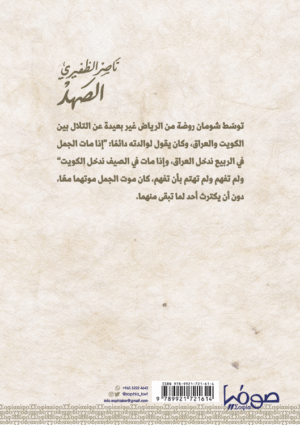 ناصر الظفيري
الصهد
توسّط شومان روضة من الرياض غير بعيدة عن التلال بين
الكويت والعراق، وكان يقول لوالدته دائمًا: "إذا مات الجمل
في الربيع ندخل العراق، وإذا مات في الصيف ندخل الكويت"
ولم تفهم ولم تهتم بأن تفهم. كان موت الجمل موتهما معًا،
دون أن يكترث أحد لما تبقى منهما.
ISBN 978-9921-721-61-4
9 789921 721614
صوفيا